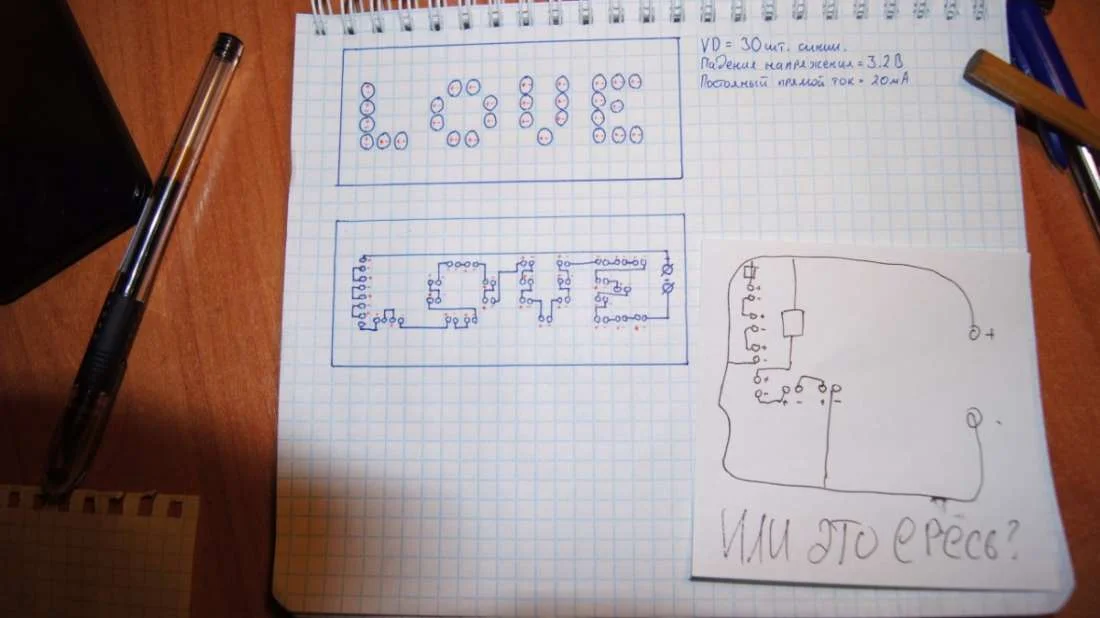 LOVE
VD = 30 шт. синии.
Падение напряжения = 3.2 В
Постояный прямой ток = 20 мА
ИЛИ ЭТО ЕРЕСЬ?